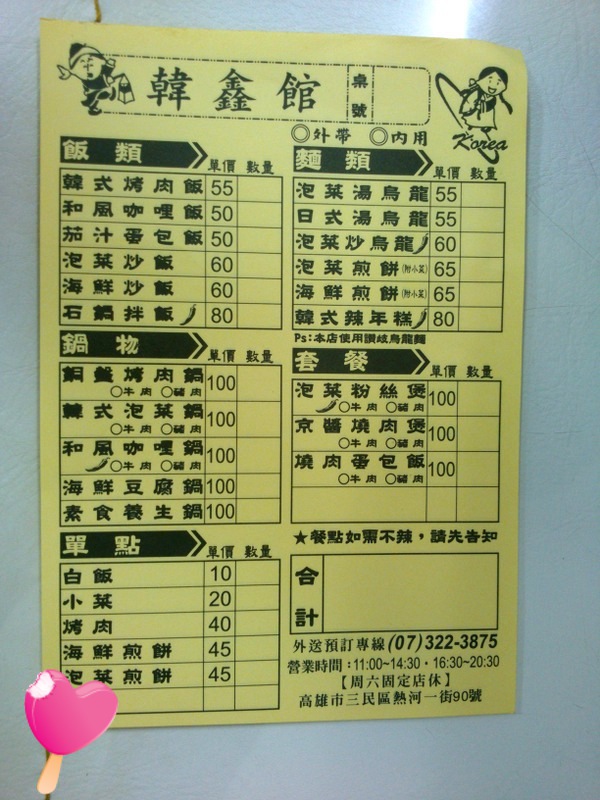 韓鑫館
桌號
Korea
◎外帶 ◎內用
飯類 單價 數量
韓式烤肉飯 55
和風咖哩飯 50
茄汁蛋包飯 50
泡菜炒飯 60
海鮮炒飯 60
石鍋拌飯 80
鍋物 單價 數量
銅盤烤肉鍋 100
○牛肉 ○豬肉
韓式泡菜鍋 100
○牛肉 ○豬肉
和風咖哩鍋 100
○牛肉 ○豬肉
海鮮豆腐鍋 100
素食養生鍋 100
單點 單價 數量
白飯 10
小菜 20
烤肉 40
海鮮煎餅 45
泡菜煎餅 45
麵類 單價 數量
泡菜湯烏龍 55
日式湯烏龍 55
泡菜炒烏龍 60
泡菜煎餅(附小菜) 65
海鮮煎餅(附小菜) 65
韓式辣年糕 80
Ps:本店使用讚岐烏龍麵
套餐 單價 數量
泡菜粉絲煲 100
○牛肉 ○豬肉
京醬燒肉煲 100
○牛肉 ○豬肉
燒肉蛋包飯 100
○牛肉 ○豬肉
★餐點如需不辣,請先告知
合計
外送預訂專線(07)322-3875
營業時間:11:00~14:30・16:30~20:30
【周六固定店休】
高雄市三民區熱河一街90號